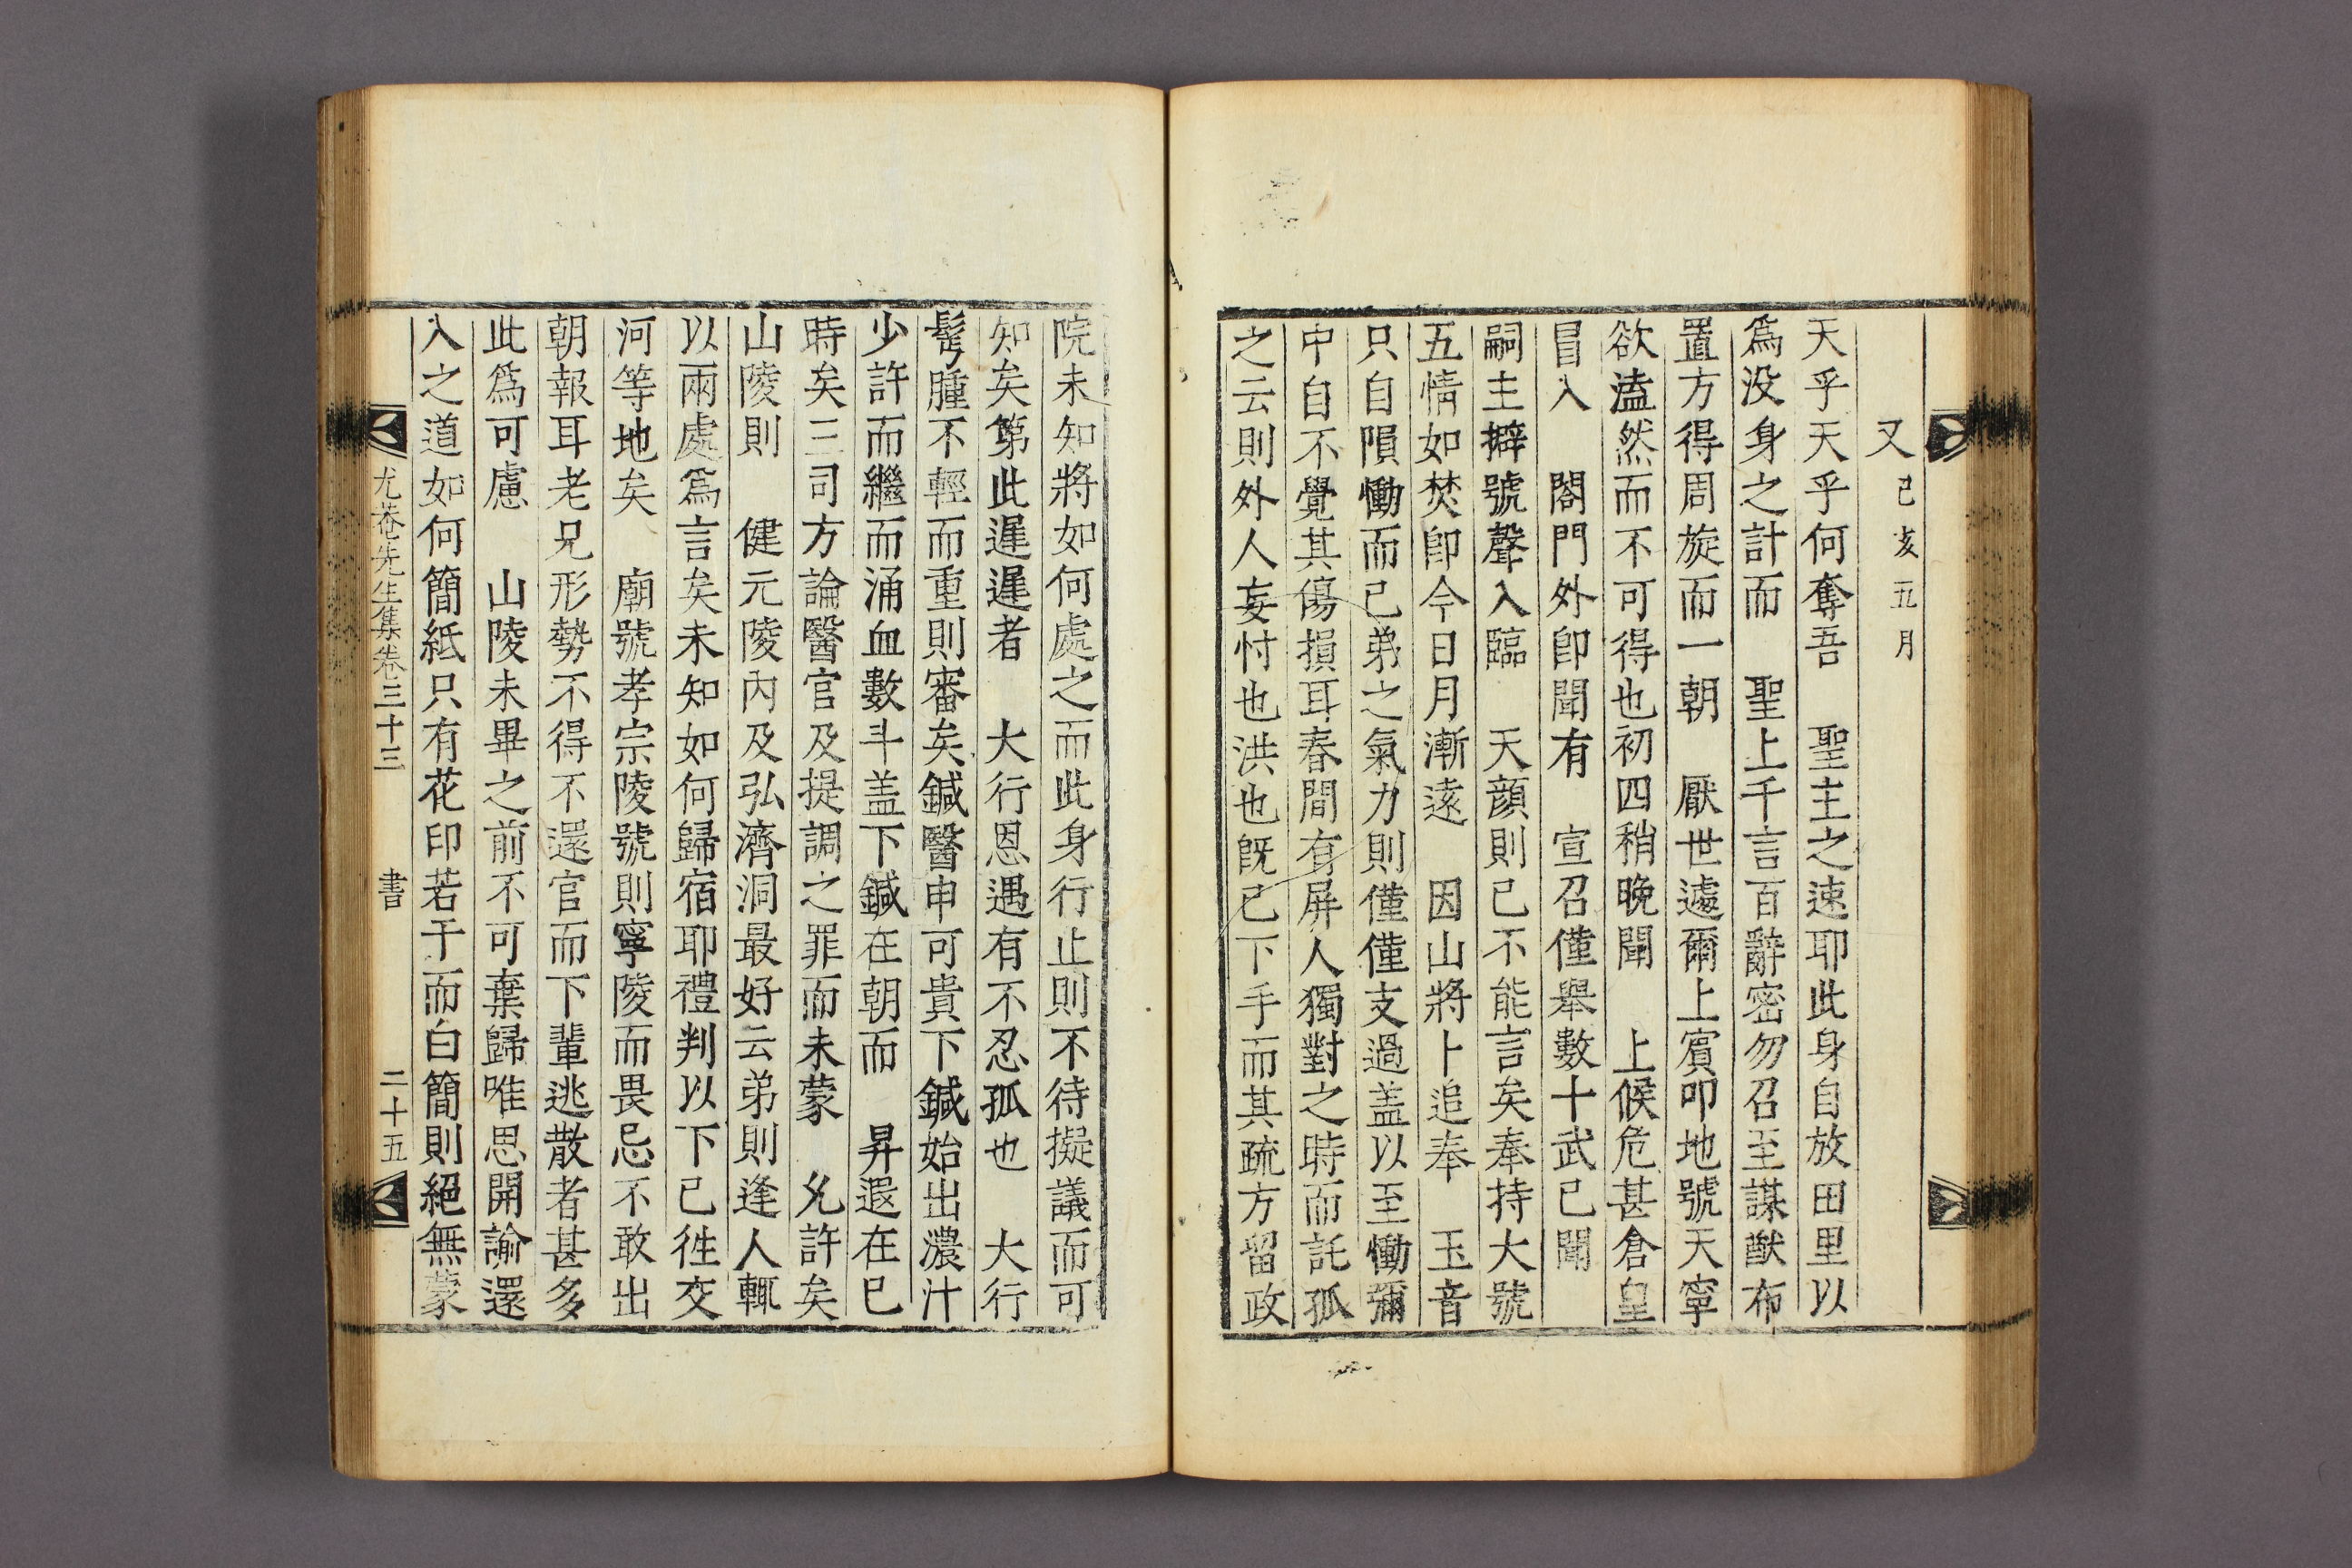 又 己亥五月
天乎天乎何奪吾 聖主之速耶此身自放田里以
爲没身之計而 聖上千言百辭密勿召至謀猷布
置方得周旋而一朝 厭世遽爾上賓叩地號天寧
欲溘然而不可得也初四稍晚聞 上候危甚倉皇
冒入 閤門外卽聞有 宣召僅擧數十武已聞
嗣主擗號聲入臨 天顔則已不能言矣奉持大號
五情如焚卽今日月漸遠 因山將卜追奉 玉音
只自隕慟而已弟之氣力則僅僅支過盖以至慟彌
中自不覺其傷損耳春間有屏人獨對之時而託孤
之云則外人妄忖也洪也旣已下手而其疏方留政
院未知將如何處之而此身行止則不待擬議而可
知矣第此遲遲者 大行恩遇有不忍孤也 大行
髩腫不輕而重則審矣鍼醫申可貴下鍼始出濃汁
少許而繼而涌血數斗盖下鍼在朝而 昇遐在巳
時矣三司方論醫官及提調之罪而未蒙 允許矣
山陵則 健元陵內及弘濟洞最好云弟則逢人輒
以兩處爲言矣未知如何歸宿耶禮判以下已徃交
河等地矣 廟號孝宗陵號則寧陵而畏忌不敢出
朝報耳老兄形勢不得不還官而下輩逃散者甚多
此爲可慮 山陵未畢之前不可棄歸唯思開諭還
入之道如何簡紙只有花印若干而白簡則絕無蒙
尤菴先生集卷三十三 書 二十五